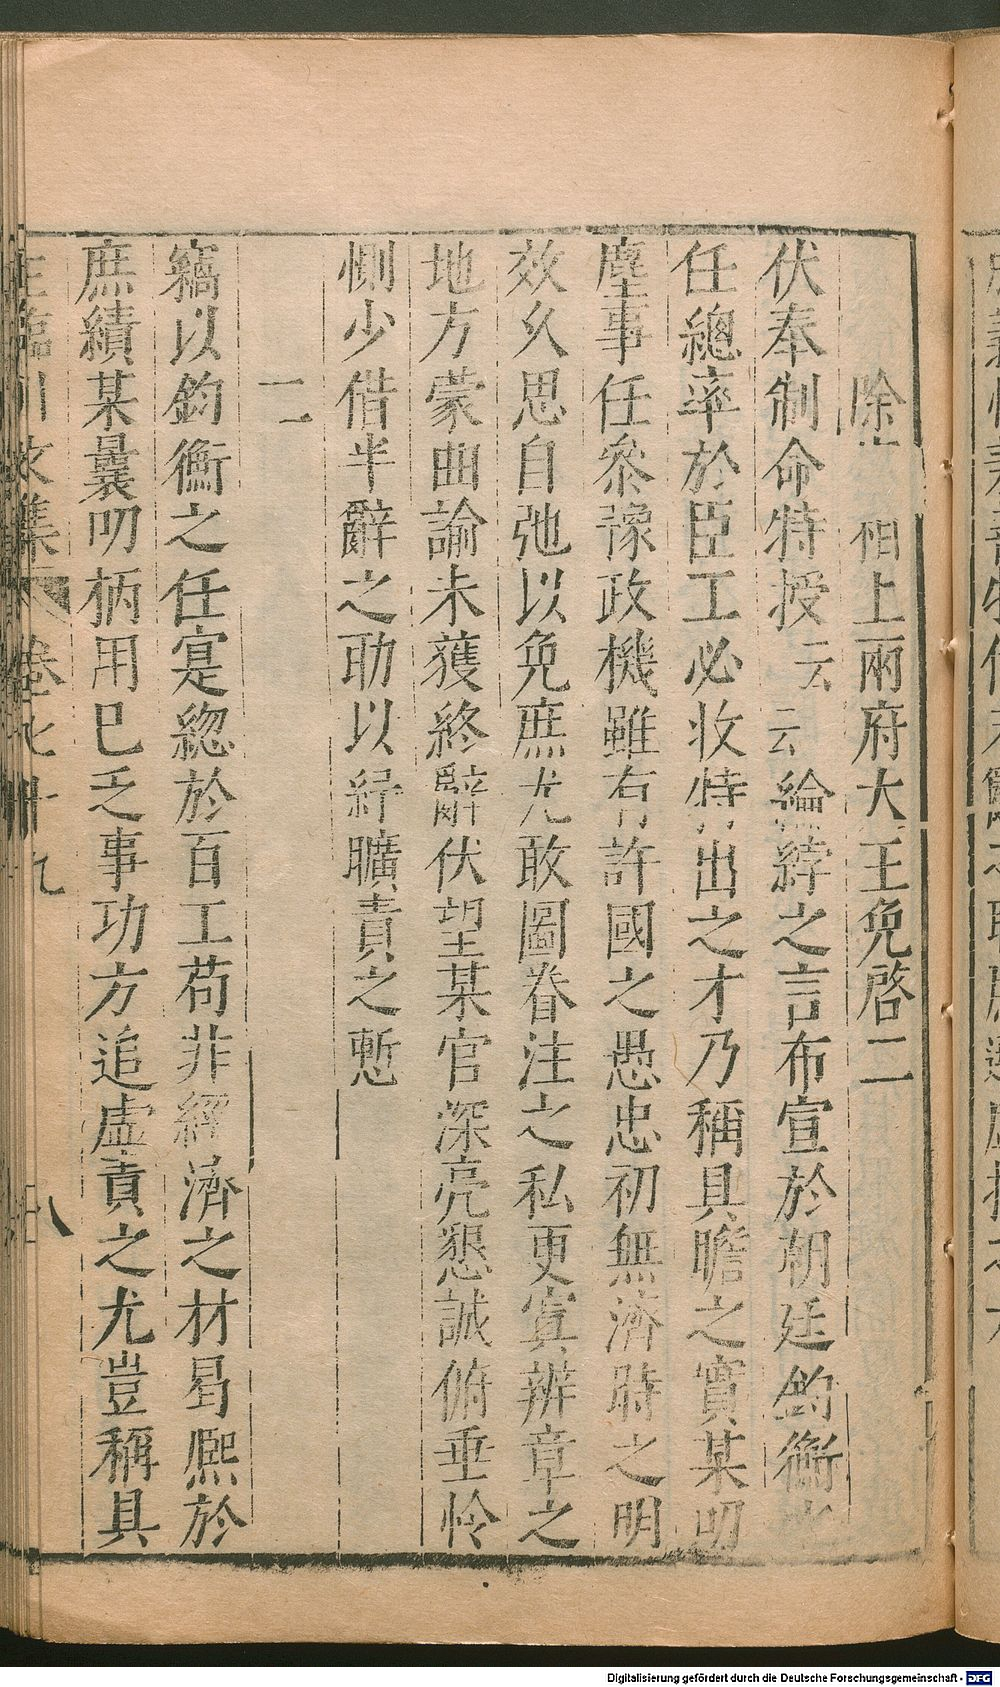 除 相上兩府大王免啓二
伏奉制命特授云云綸綍之言布宣於朝廷鈞衡
任總率於臣工必收特出之才乃稱具瞻之實某叨
塵事任叅豫政機雖有許國之愚忠初無濟時之明
效久思自弛以免庶尤敢圖眷注之私更寘辨章之
地方蒙曲諭未獲終辭伏望某官深亮懇誠俯垂怜
惻少借半辭之助以紓曠責之慙
二
竊以鈞衡之任寔緫於百工苟非經濟之材曷熈於
庶績某曩叨柄用巳乏事功方追虛責之尤豈稱具
臨川文集 卷七十九 八
Digitalisierung gefördert durch die Deutsche Forschungsgemeinschaft - DFG